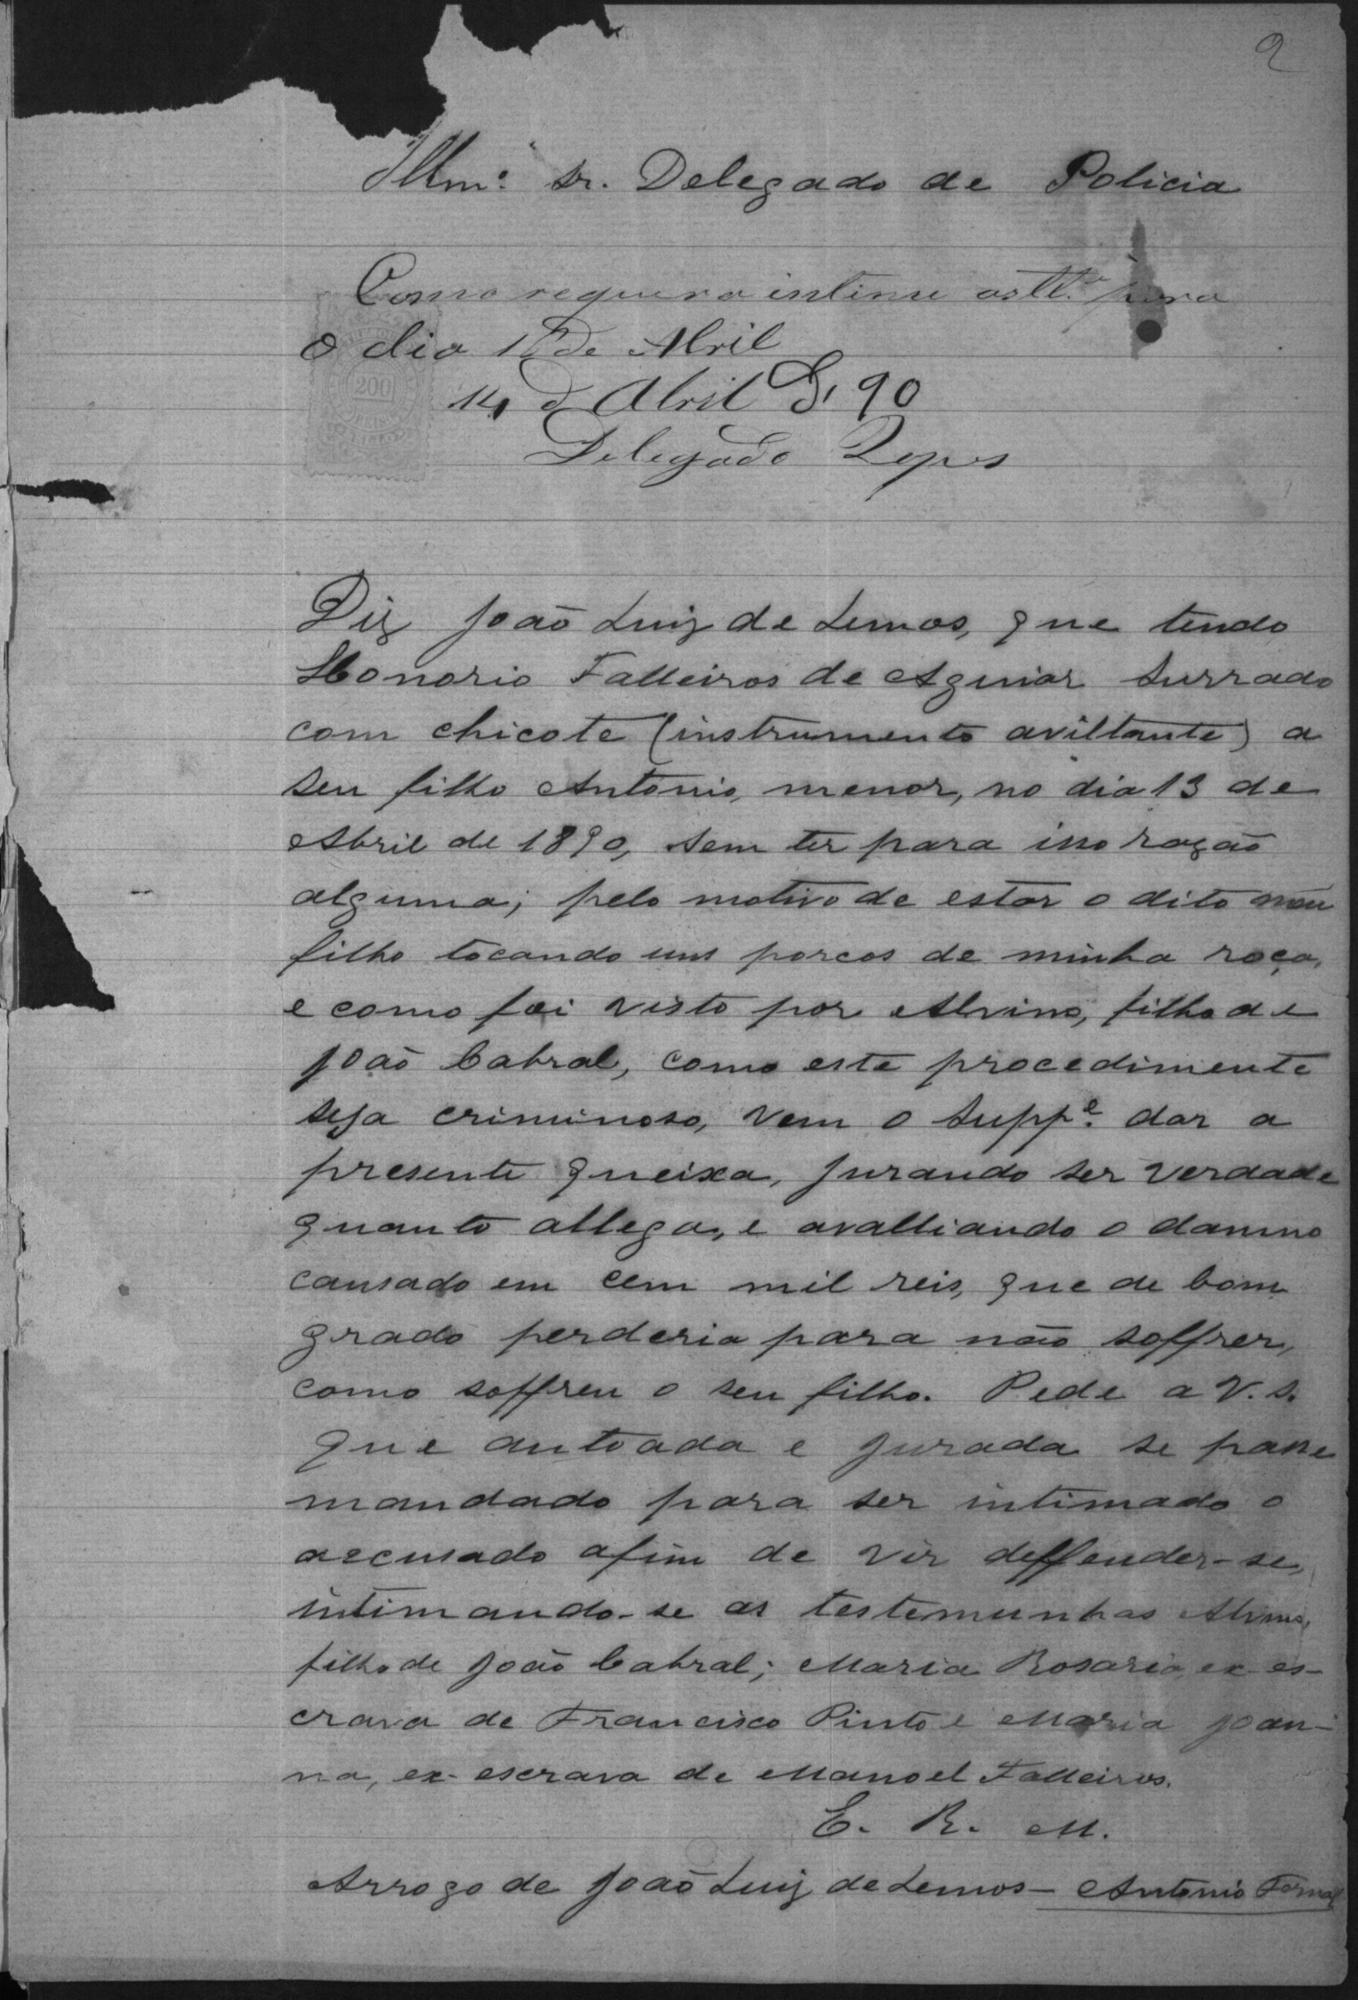 2
Illmº Sr. Delegado de Policia
Como requer intime as ttª para
o dia de Abril
14 d Abril 90
Delegado
200
Diz João Luiz de Lemos, que tendo
Honorio Falleiros de Aguiar surrado
com chicote (instrumento aviltante) a
seu filho Antonio, menor, no dia 13 de
Abril de 1890, sem ter para isso razão
alguma; pelo motivo de estar o dito meu
filho tocando uns porcos de minha roça,
e como foi visto por Alvino, filho de
João Cabral, como este procedimento
seja criminoso, vem o Suppe. dar a
presente queixa, jurando ser verdade
quanto allega, e avalliando o damno
causado em cem mil reis, que de bom
grado perderia para não soffrer,
como soffreu o seu filho. Pede a V. S.
que autoada e jurada se passe
mandado para ser intimado o
accusado afim de vir deffender-se,
intimando-se as testemunhas Alvino,
filho de João Cabral; Maria Rosaria, ex-es-
crava de Francisco Pinto e Maria Joan-
na, ex-escrava de Manoel Falleiros.
E. R. M.
Arrogo de João Luiz de Lemos - Antonio